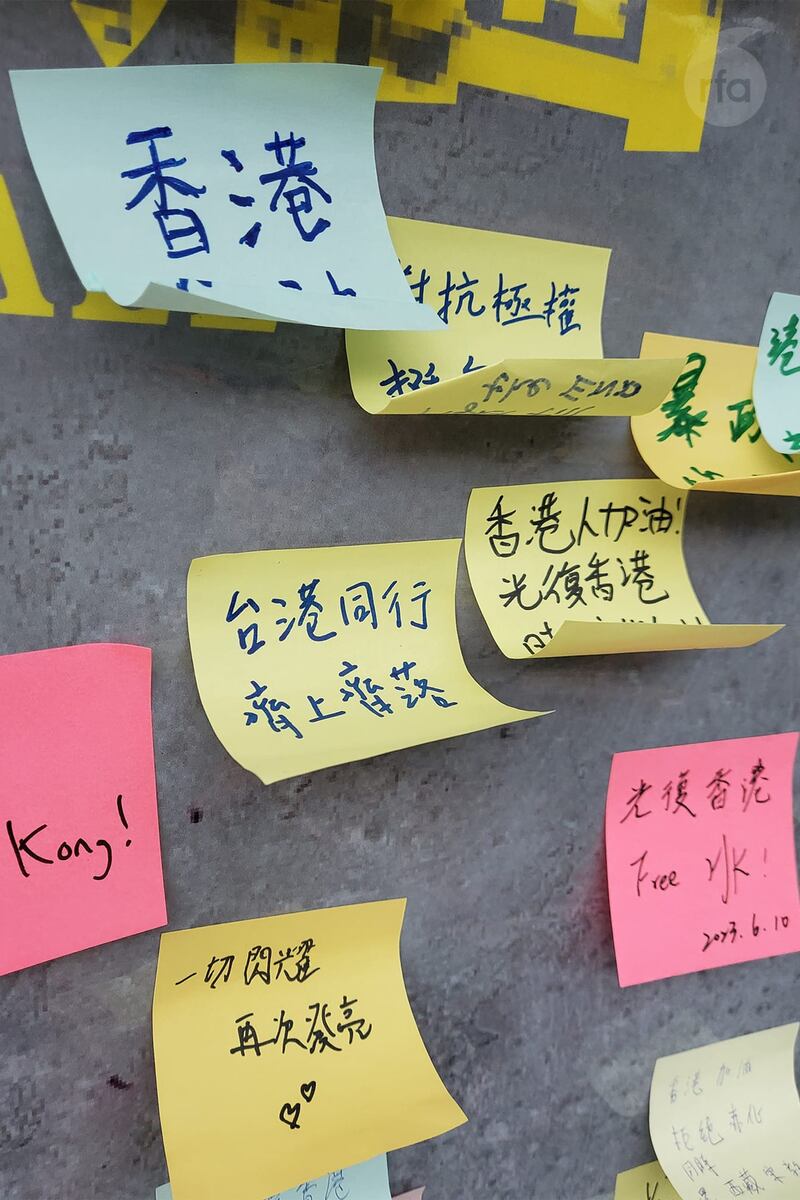 rfa
香港
抗極權
暴政
港
香港人加油!
光復香港
台港同行
齊上齊落
Kong!
光復香港
Free HK!
2023.6.10
一切閃耀
再次發亮
香港加油
拒絕赤化
香港